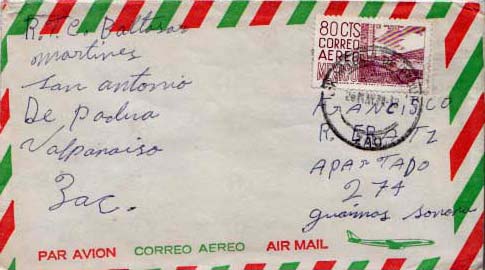 R.T.E. Baltasar
martines
san antonio
De padua
Valparaiso
Zac.
80 CTS
CORREO
AEREO
FRANCISCO
APARTADO
274
guaimas sonora
PAR AVION CORREO AEREO AIR MAIL